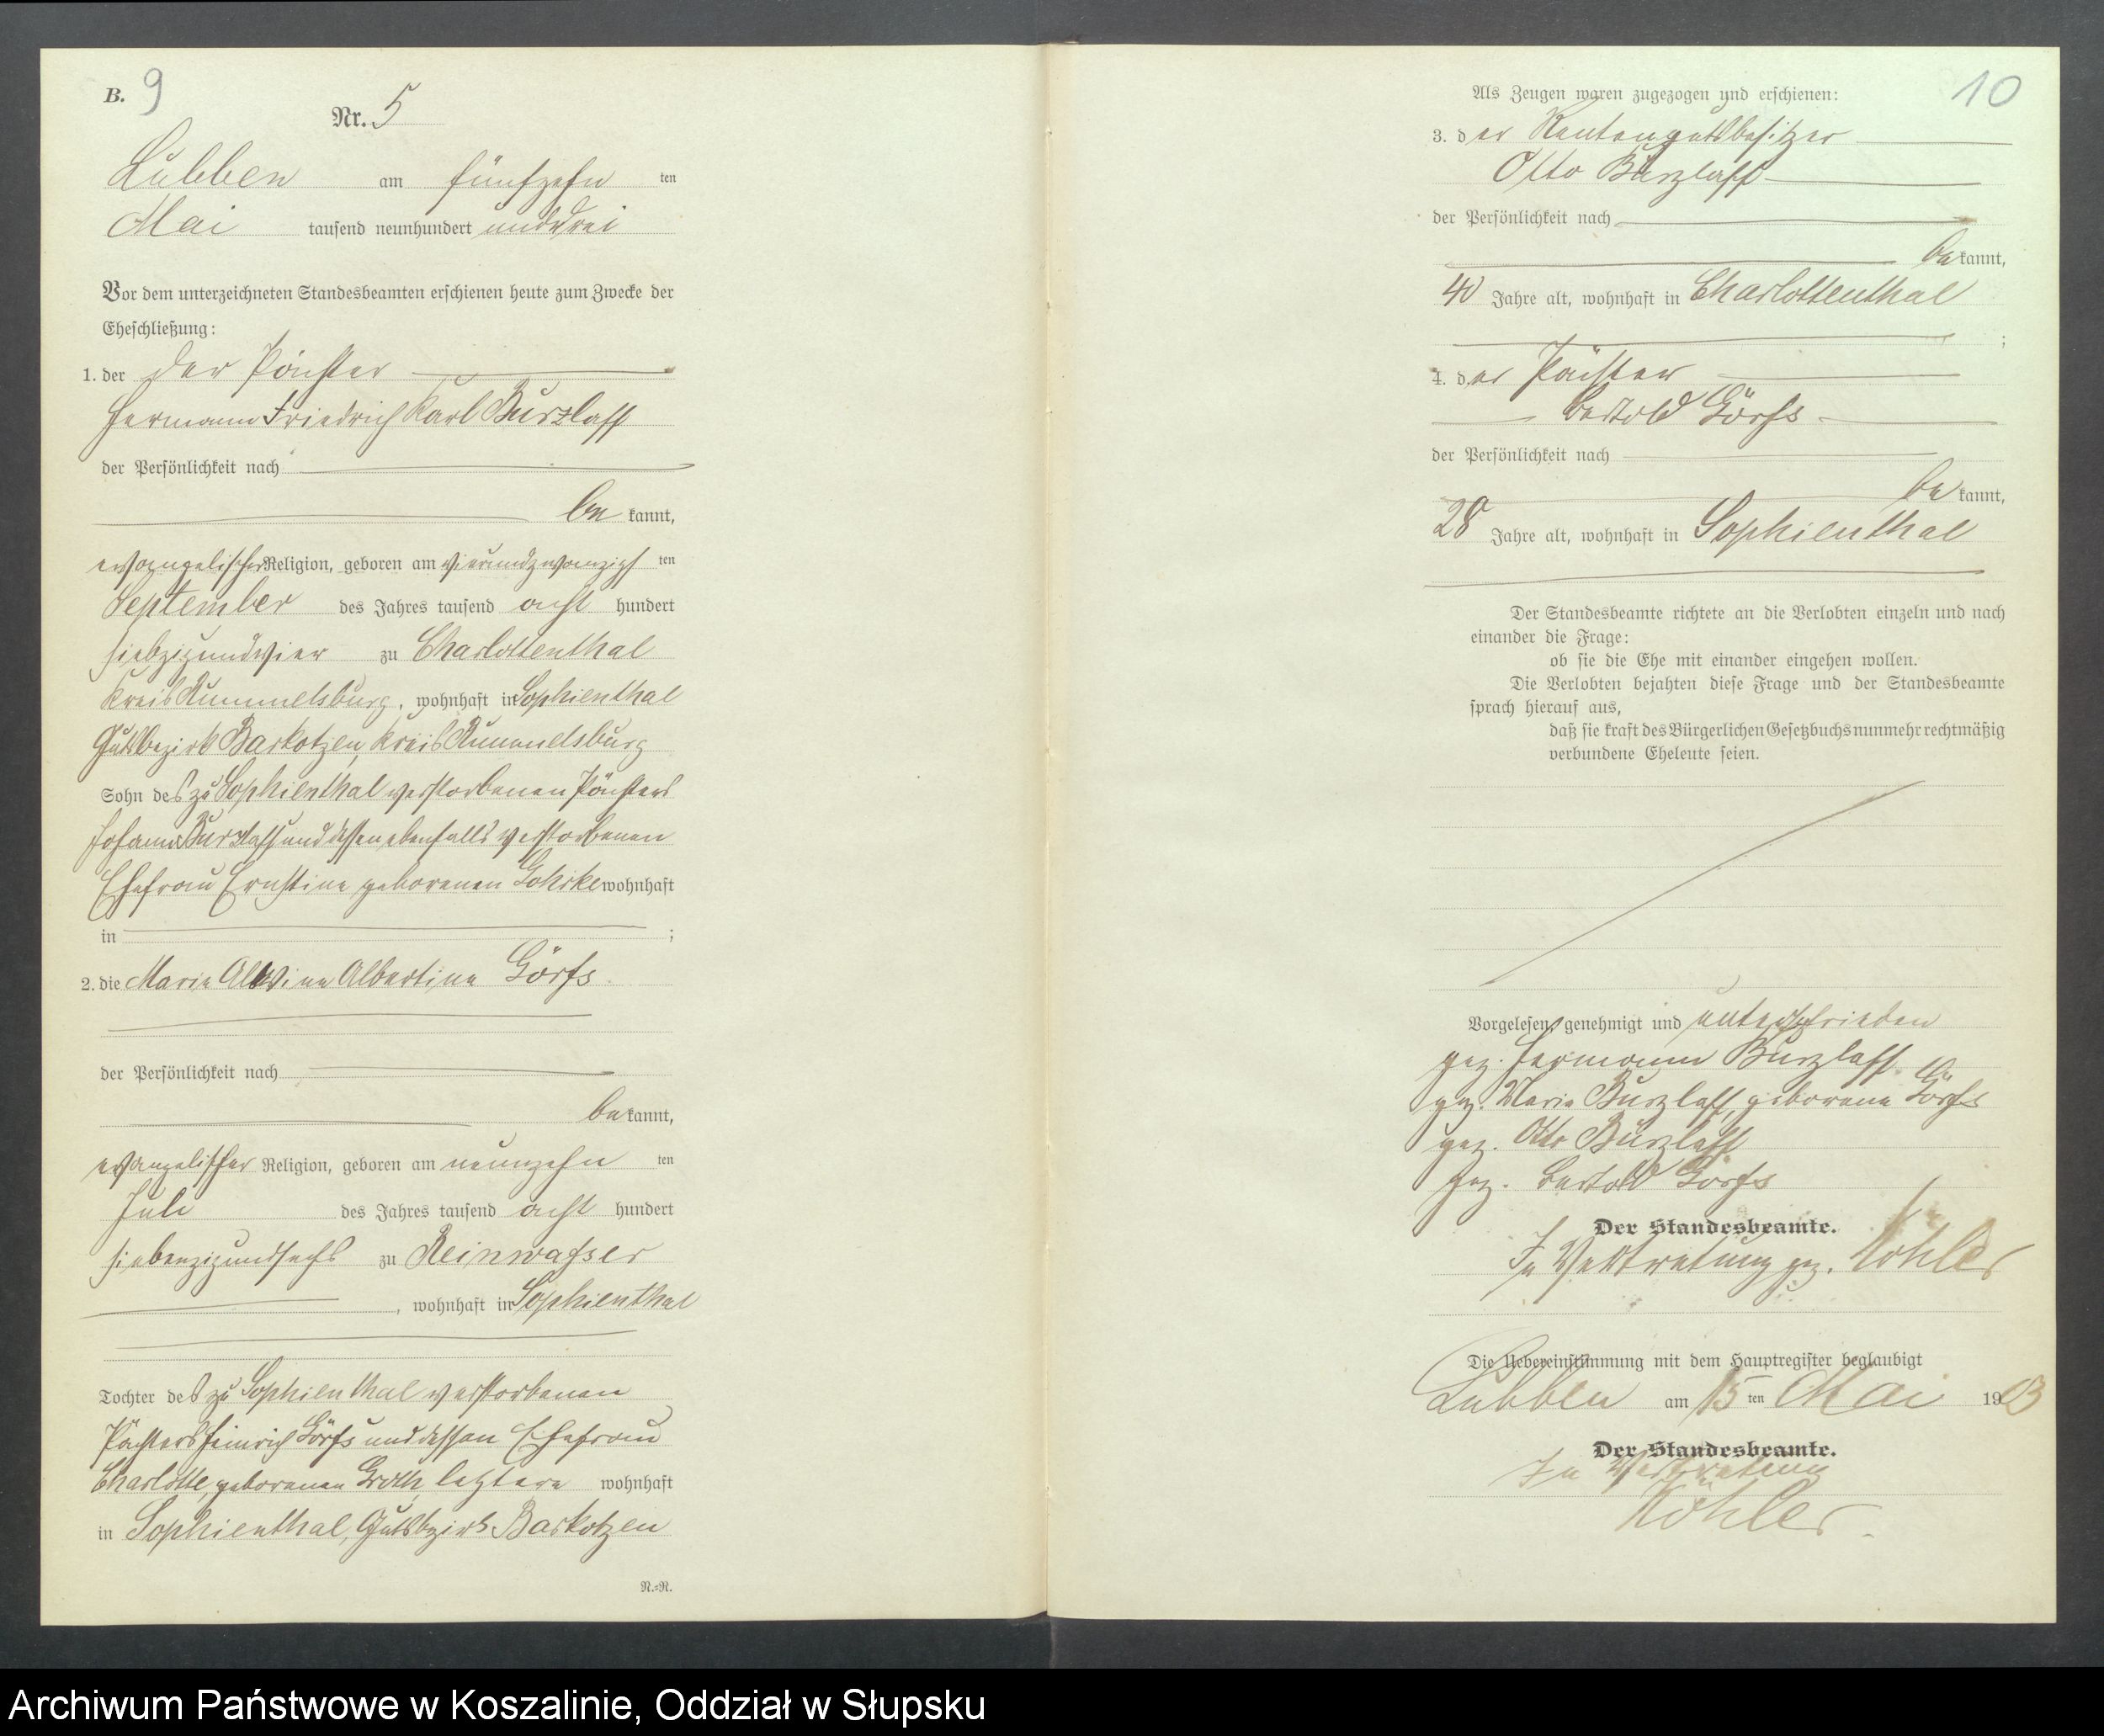 B. 9
Nr. 5
Lubben am fünfzehn ten
Mai tausend neunhundert und drei
Vor dem unterzeichneten Standesbeamten erschienen heute zum Zwecke der
Eheschließung:
1. der der Pächter
Hermann Friedrich Karl Burzlaff
der Persönlichkeit nach
be kannt,
evangelischer Religion, geboren am vierundzwanzigs ten
September des Jahres tausend acht hundert
siebzigundvier zu Charlottenthal
Kreis Rummelsburg, wohnhaft in Sophienthal
Gutsbezirk Barkotzen, Kreis Rummelsburg
Sohn des zu Sophienthal verstorbenen Pächters
Johann Burzlaff und dessen ebenfalls verstorbenen
Ehefrau Ernstine geborenen Gohrke wohnhaft
in ;
2. die Marie Alwine Albertine Görfs
der Persönlichkeit nach
be kannt,
evangelischer Religion, geboren am neunzehn ten
Juli des Jahres tausend acht hundert
siebenzigundsechs zu Reinwasser
, wohnhaft in Sophienthal
Tochter des zu Sophienthal verstorbenen
Pächters Heinrich Görfs und dessen Ehefrau
Charlotte, geborenen Groth, letztere wohnhaft
in Sophienthal, Gutsbezirk Barkotzen
N.=N.
10
Als Zeugen waren zugezogen und erschienen:
3. der Rentengutsbesitzer
Otto Burzlaff
der Persönlichkeit nach
be kannt,
40 Jahre alt, wohnhaft in Charlottenthal
;
4. der Pächter
Bertold Görfs
der Persönlichkeit nach
be kannt,
28 Jahre alt, wohnhaft in Sophienthal
Der Standesbeamte richtete an die Verlobten einzeln und nach
einander die Frage:
ob sie die Ehe mit einander eingehen wollen.
Die Verlobten bejahten diese Frage und der Standesbeamte
sprach hierauf aus,
daß sie kraft des Bürgerlichen Gesetzbuchs nunmehr rechtmäßig
verbundene Eheleute seien.
Vorgelesen, genehmigt und unterschrieben
gez. Hermann Burzlaff.
gez. Marie Burzlaff, geborene Görfs
gez. Otto Burzlaff
gez. Bertold Görfs
Der Standesbeamte.
In Vertretung gez. Köhler
Die Uebereinstimmung mit dem Hauptregister beglaubigt
Lubben am 15 ten Mai 1903
Der Standesbeamte.
In Vertretung
Köhler.
Archiwum Państwowe w Koszalinie, Oddział w Słupsku